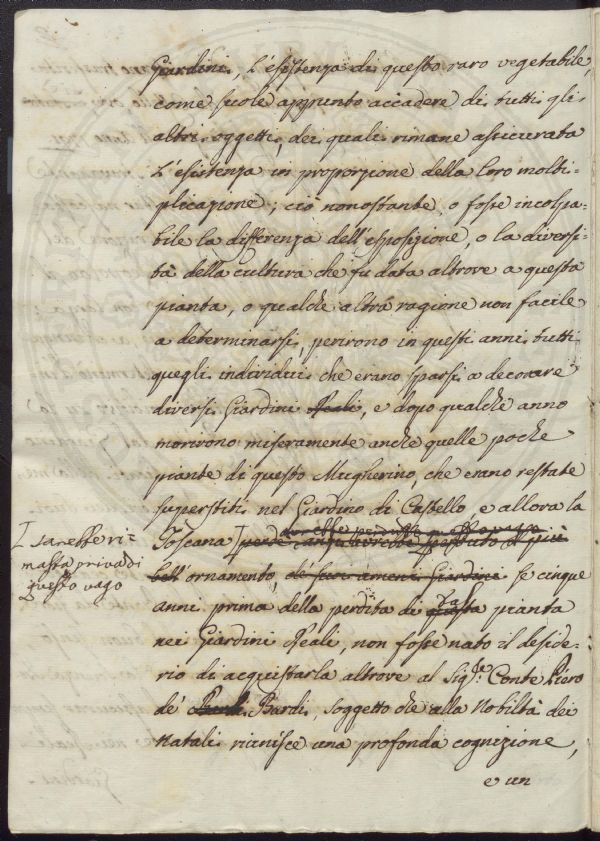 Giardini, l'esistenza di questo raro vegetabile,
come suole appunto accadere di tutti gli
altri oggetti, dei quali rimane assicurata
l'esistenza in proporzione della loro molti-
plicazione; ciò nonostante, o fosse incolpa-
bile la differenza dell'esposizione, o la diversi-
tà della cultura che fu data altrove a questa
pianta, o qualche altra ragione non facile
a determinarsi, perirono in questi anni tutti
quegli individui che erano sparsi a decorare
diversi Giardini Reali, e dopo qualche anno
morirono miseramente anche quelle poche
piante di questo Mugherino, che erano restate
superstiti nel Giardino di Castello, e allora la
sarebbe ri-
masta priva di
questo vago
Toscana perduto il più
bell'ornamento, de' suoi ameni Giardini se cinque
anni prima della perdita di tal pianta
nei Giardini Reali, non fosse nato il deside-
rio di acquistarla altrove al Sig.re Conte Piero
de' Bardi, soggetto che alla Nobiltà dei
Natali riunisce una profonda cognizione,
e un